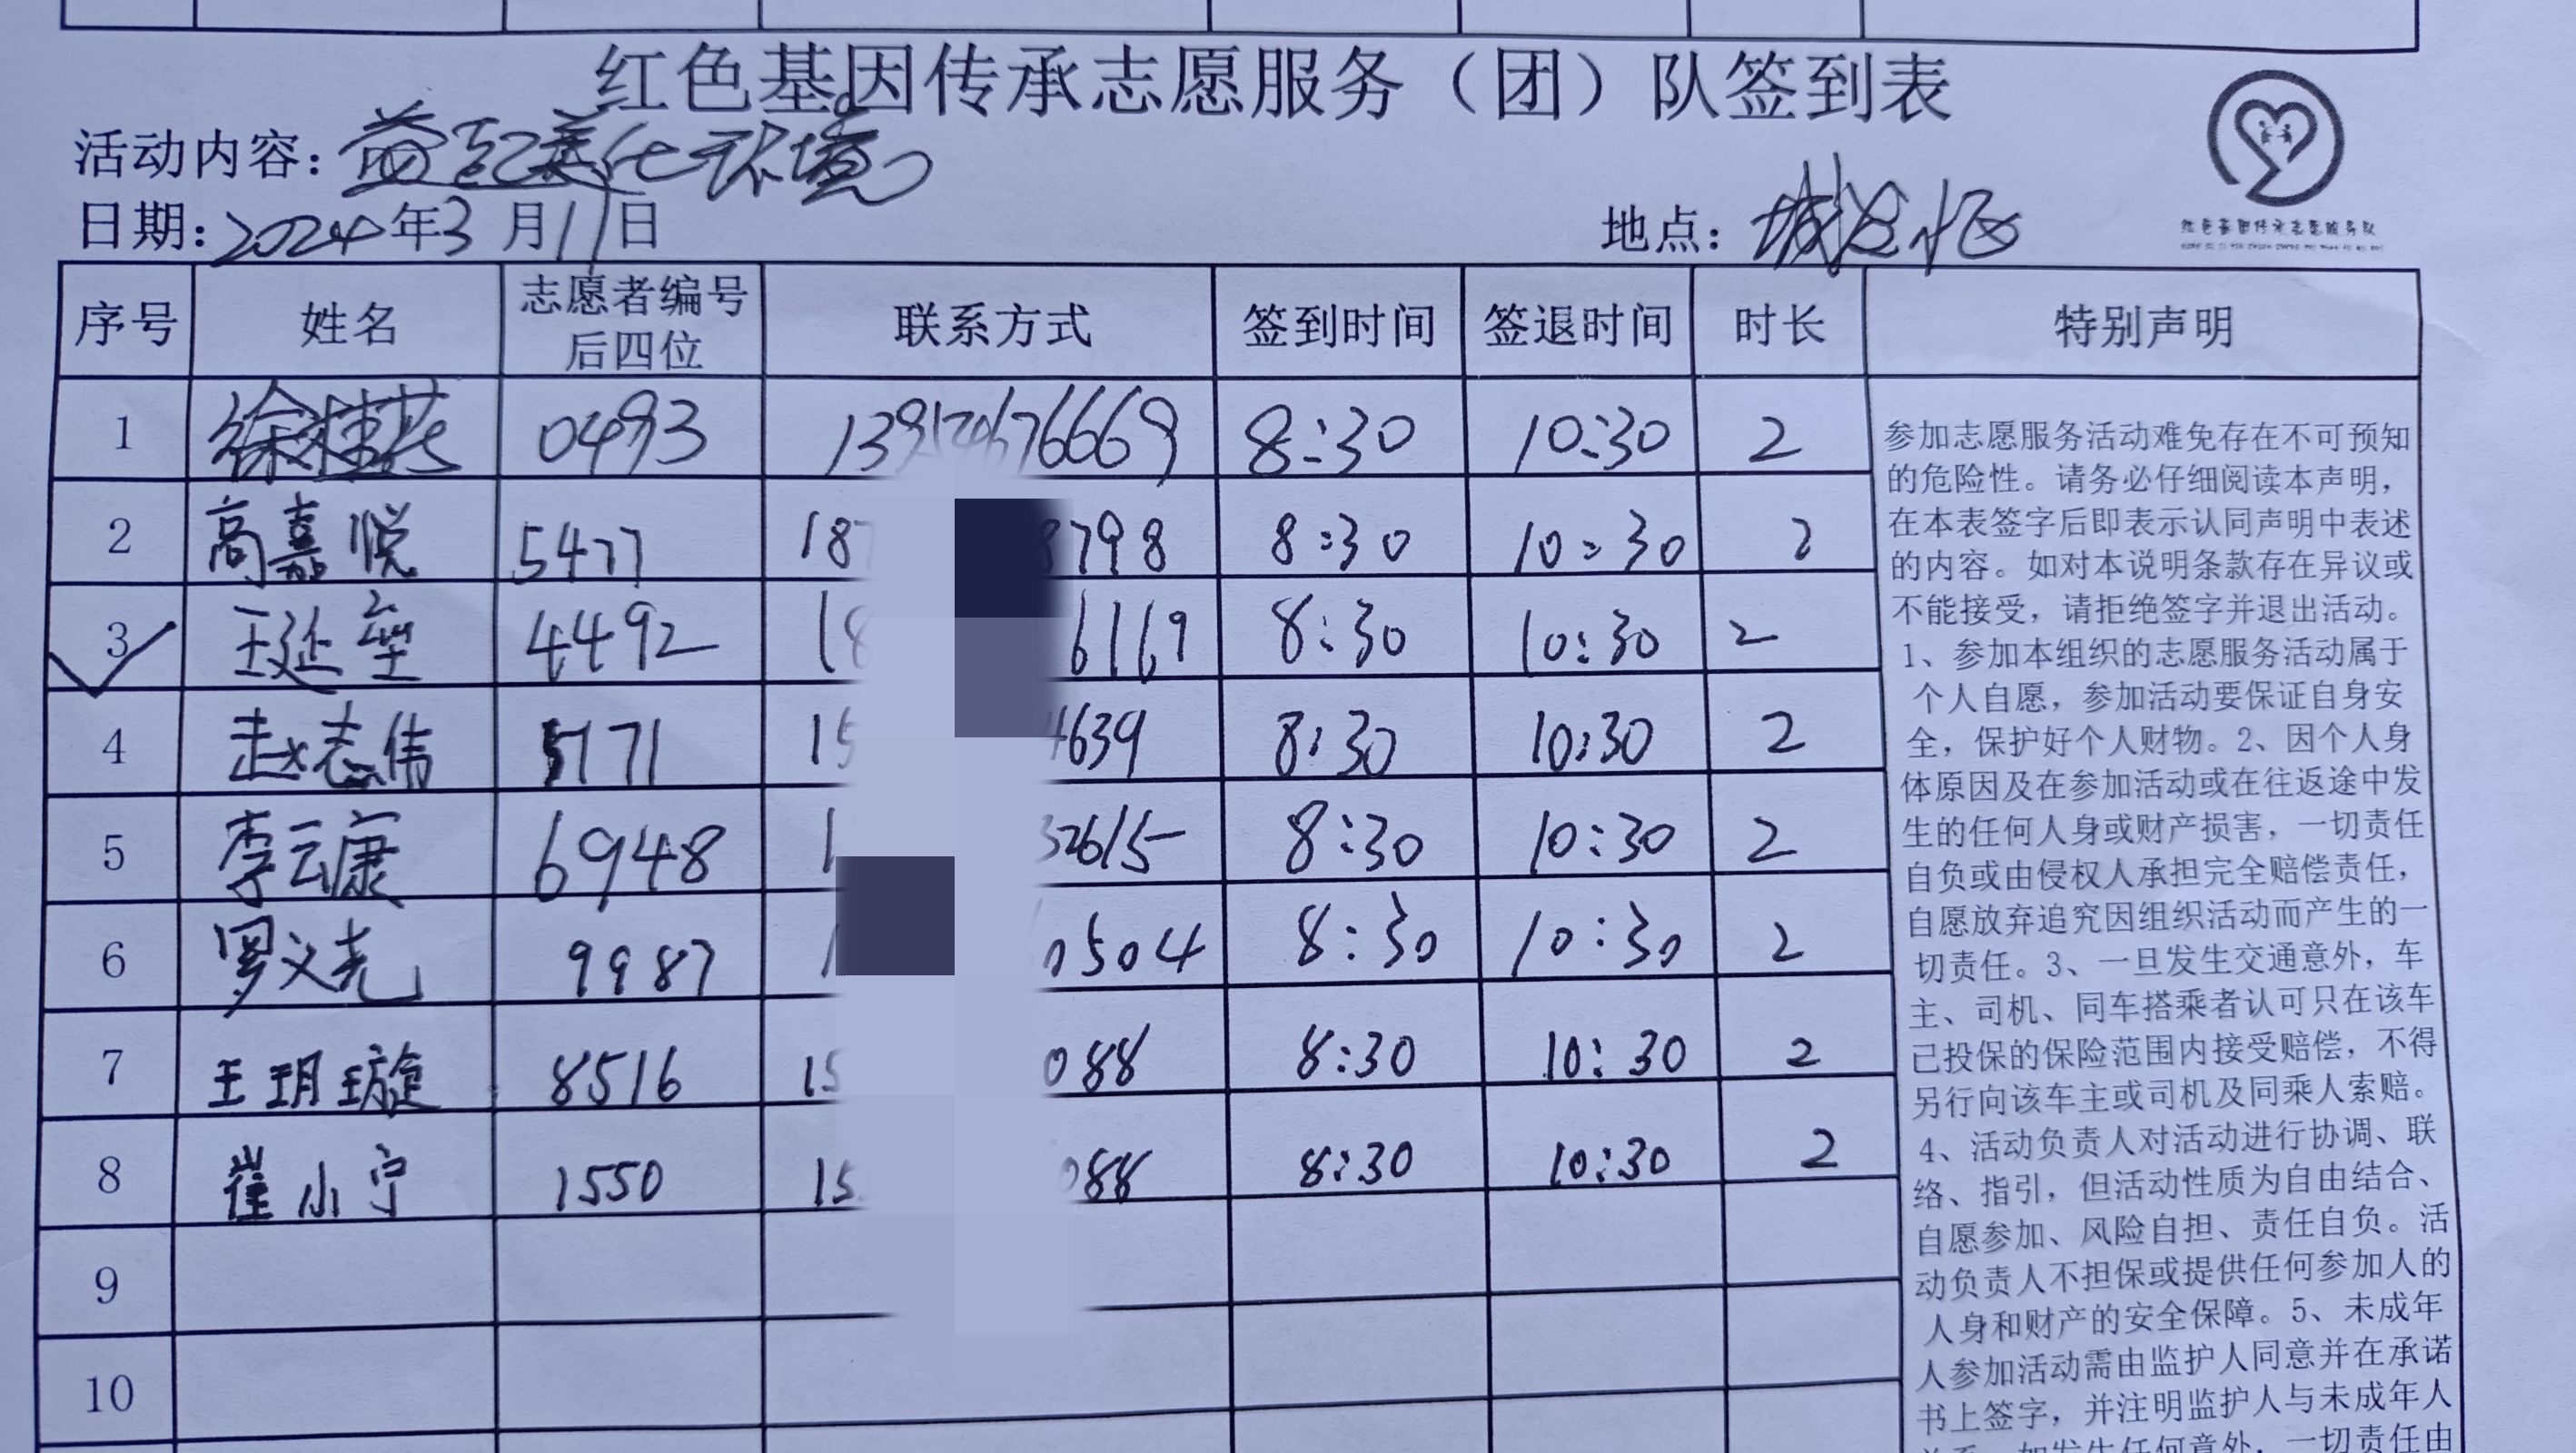 红色基因传承志愿服务（团）队签到表
活动内容：益起美化环境
日期：2024年3月11日
地点：
红色基因传承志愿服务队
序号 姓名 志愿者编号后四位 联系方式 签到时间 签退时间 时长 特别声明
1 徐桂花 0493 8:30 10:30 2
2 高嘉悦 5477 187 8798 8:30 10:30 2
3 王延 4492 18 6169 8:30 10:30 2
4 赵志伟 5171 15 4639 8:30 10:30 2
5 李云康 6948 1 32615 8:30 10:30 2
6 罗义尧 9987 1 0504 8:30 10:30 2
7 王玥璇 8516 15 088 8:30 10:30 2
8 崔小宁 1550 15 088 8:30 10:30 2
9
10
参加志愿服务活动难免存在不可预知
的危险性。请务必仔细阅读本声明，
在本表签字后即表示认同声明中表述
的内容。如对本说明条款存在异议或
不能接受，请拒绝签字并退出活动。
1、参加本组织的志愿服务活动属于
个人自愿，参加活动要保证自身安
全，保护好个人财物。2、因个人身
体原因及在参加活动或在往返途中发
生的任何人身或财产损害，一切责任
自负或由侵权人承担完全赔偿责任，
自愿放弃追究因组织活动而产生的一
切责任。3、一旦发生交通意外，车
主、司机、同车搭乘者认可只在该车
已投保的保险范围内接受赔偿，不得
另行向该车主或司机及同乘人索赔。
4、活动负责人对活动进行协调、联
络、指引，但活动性质为自由结合、
自愿参加、风险自担、责任自负。活
动负责人不担保或提供任何参加人的
人身和财产的安全保障。5、未成年
人参加活动需由监护人同意并在承诺
书上签字，并注明监护人与未成年人
如发生任何意外，一切责任由